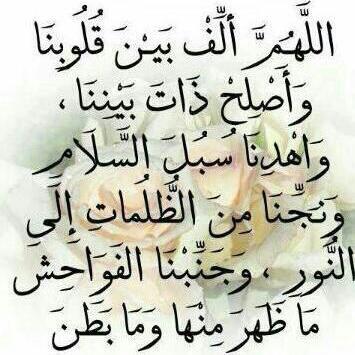 اللَّهُمَّ أَلِّفْ بَيْنَ قُلُوبِنَا
وَأَصْلِحْ ذَاتَ بَيْنِنَا ،
وَاهْدِنَا سُبُلَ السَّلَامِ
وَنَجِّنَا مِنَ الظُّلُمَاتِ إِلَى
النُّورِ ، وَجَنِّبْنَا الفَوَاحِشَ
مَا ظَهَرَ مِنْهَا وَمَا بَطَنَ